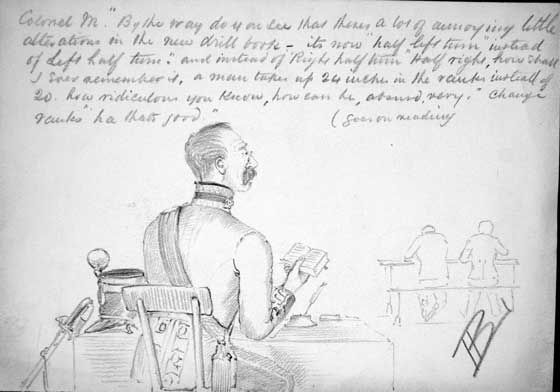 Colonel M. "By the way do you see that theres a lot of annoying little
alterations in the new drill book – its now "half left turn" instead
of Left half turn": and instead of Right half turn "Half right, how shall
I ever remember it, a man takes up 24 inches in the ranks instead of
20. how ridiculous you know, how can he, absurd, very." Change
ranks" ha thats good."
(Goes on reading